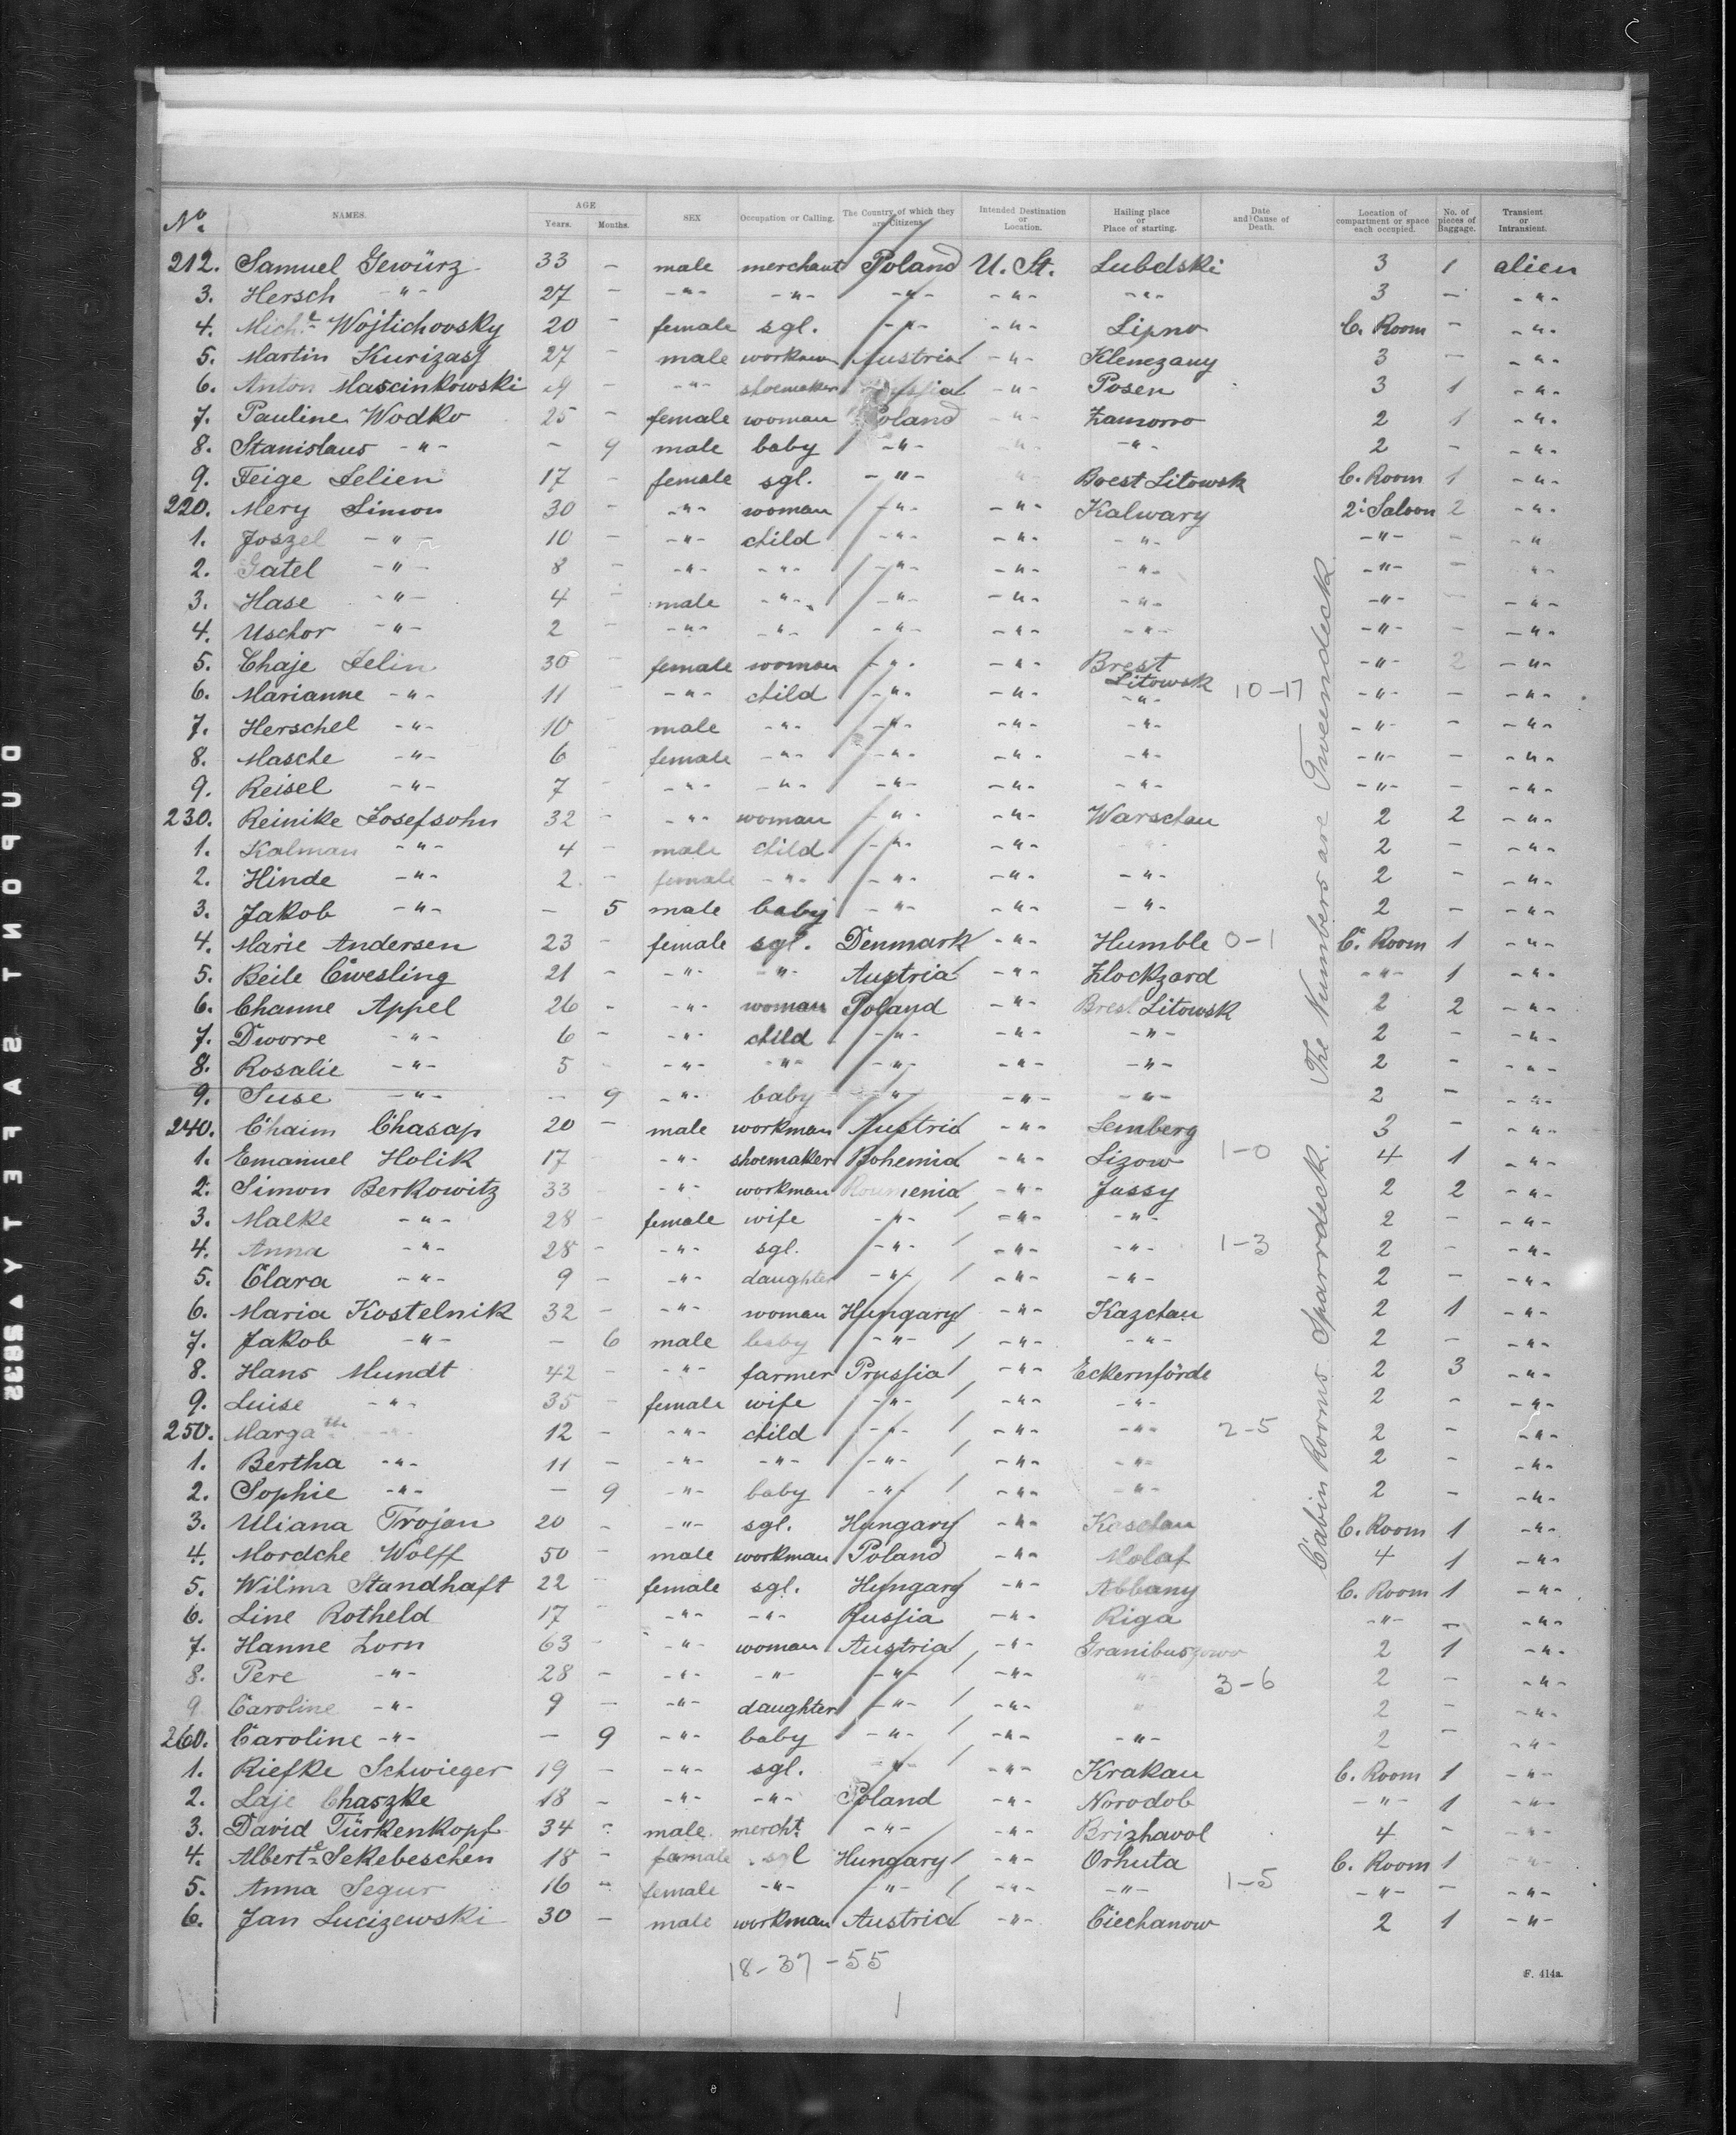 No. NAMES. AGE Years. Months. SEX Occupation or Calling. The Country of which they are Citizens. Intended Destination or Location. Hailing place or Place of starting. Date and Cause of Death. Location of compartment or space each occupied. No. of pieces of Baggage. Transient or Intransient.
212. Samuel Gewürz 33 - male merchant Poland U. St. Lubdski 3 1 alien
3. Hersch -"- 27 - -"- -"- -"- -"- -"- 3 - -"-
4. Mich.e Wojtichovsky 20 - female sgl. -"- -"- Lipno C. Room - -"-
5. Martin Kurizasz 27 - male workman Austria -"- Klenczany 3 - -"-
6. Anton Mascinkowski - -"- shoemaker -"- Posen 3 1 -"-
7. Pauline Wodko 25 - female woman Poland -"- Zamorro 2 1 -"-
8. Stanislaus -"- - 9 male baby -"- -"- -"- 2 - -"-
9. Feige Selien 17 - female sgl. -"- -"- Brest Litowsk C. Room 1 -"-
220. Mery Simon 30 - -"- woman -"- -"- Kalwary 2. Saloon 2 -"-
1. Joszel -"- 10 - -"- child -"- -"- -"- -"- - -"-
2. Gatel -"- 8 - -"- -"- -"- -"- -"- -"- - -"-
3. Hase -"- 4 - male -"- -"- -"- -"- -"- - -"-
4. Uschor -"- 2 - -"- -"- -"- -"- -"- -"- - -"-
5. Chaje Selin 30 - female woman -"- -"- Brest Litowsk -"- 2 -"-
6. Marianne -"- 11 - -"- child -"- -"- -"- 10-17 -"- - -"-
7. Herschel -"- 10 - male -"- -"- -"- -"- -"- - -"-
8. Masche -"- 6 - female -"- -"- -"- -"- -"- - -"-
9. Reisel -"- 7 - -"- -"- -"- -"- -"- -"- - -"-
230. Reinike Josefsohn 32 - -"- woman -"- -"- Warschau 2 2 -"-
1. Kalman -"- 4 - male child -"- -"- -"- 2 - -"-
2. Hinde -"- 2 - female -"- -"- -"- -"- 2 - -"-
3. Jakob -"- - 5 male baby -"- -"- -"- 2 - -"-
4. Marie Andersen 23 - female sgl. Denmark -"- Humble 0-1 C. Room 1 -"-
5. Beile Cwesling 21 - -"- -"- Austria -"- Zlockzard -"- 1 -"-
6. Channe Appel 26 - -"- woman Poland -"- Brest Litowsk 2 2 -"-
7. Dworre -"- 6 - -"- child -"- -"- -"- 2 - -"-
8. Rosalie -"- 5 - -"- -"- -"- -"- -"- 2 - -"-
9. Suse -"- - 9 -"- baby -"- -"- -"- 2 - -"-
240. Chaim Chasap 20 - male workman Austria -"- Lemberg 3 - -"-
1. Emanuel Holik 17 - -"- shoemaker Bohemia -"- Lizow 1-0 4 1 -"-
2. Simon Berkowitz 33 - -"- workman Roumenia -"- Jassy 2 2 -"-
3. Malke -"- 28 - female wife -"- -"- -"- 2 - -"-
4. Anna -"- 28 - -"- sgl. -"- -"- -"- 1-3 2 - -"-
5. Clara -"- 9 - -"- daughter -"- -"- -"- 2 - -"-
6. Maria Kostelnik 32 - -"- woman Hungary -"- Kazchau 2 1 -"-
7. Jakob -"- - 6 male baby -"- -"- -"- 2 - -"-
8. Hans Mundt 42 - -"- farmer Prussia -"- Eckernförde 2 3 -"-
9. Luise -"- 35 - female wife -"- -"- -"- 2 - -"-
250. Margath -"- 12 - -"- child -"- -"- -"- 2-5 2 - -"-
1. Bertha -"- 11 - -"- -"- -"- -"- -"- 2 - -"-
2. Sophie -"- - 9 -"- baby -"- -"- -"- 2 - -"-
3. Uliana Trojan 20 - -"- sgl. Hungary -"- Kaschau C. Room 1 -"-
4. Mordche Wolff 50 - male workman Poland -"- Molaf 4 1 -"-
5. Wilma Standhaft 22 - female sgl. Hungary -"- Abbany C. Room 1 -"-
6. Line Rotheld 17 - -"- -"- Russia -"- Riga -"- - -"-
7. Hanne Lorn 63 - -"- woman Austria -"- 2 1 -"-
8. Pere -"- 28 - -"- -"- -"- -"- -"- 3-6 2 - -"-
9 Caroline -"- 9 - -"- daughter -"- -"- -"- 2 - -"-
260. Caroline -"- - 9 -"- baby -"- -"- -"- 2 - -"-
1. Riefke Schwieger 19 - -"- sgl. -"- -"- Krakau C. Room 1 -"-
2. Laje Chaszke 18 - -"- -"- Poland -"- Norodob -"- 1 -"-
3. David Türkenkopf 34 - male mercht. -"- -"- Brizhavol 4 - -"-
4. Albert.e Sekebeschen 18 - female sgl Hungary -"- Orhuta C. Room 1 -"-
5. Anna Segur 16 - female -"- -"- -"- -"- 1-5 -"- - -"-
6. Jan Lucizewski 30 - male workman Austria -"- Ciechanow 2 1 -"-
Cabin Rooms Sparrdeck. The Numbers are Tweendeck
18-37-55
F. 414a.
DUPONT SAFETY ▲ 5532